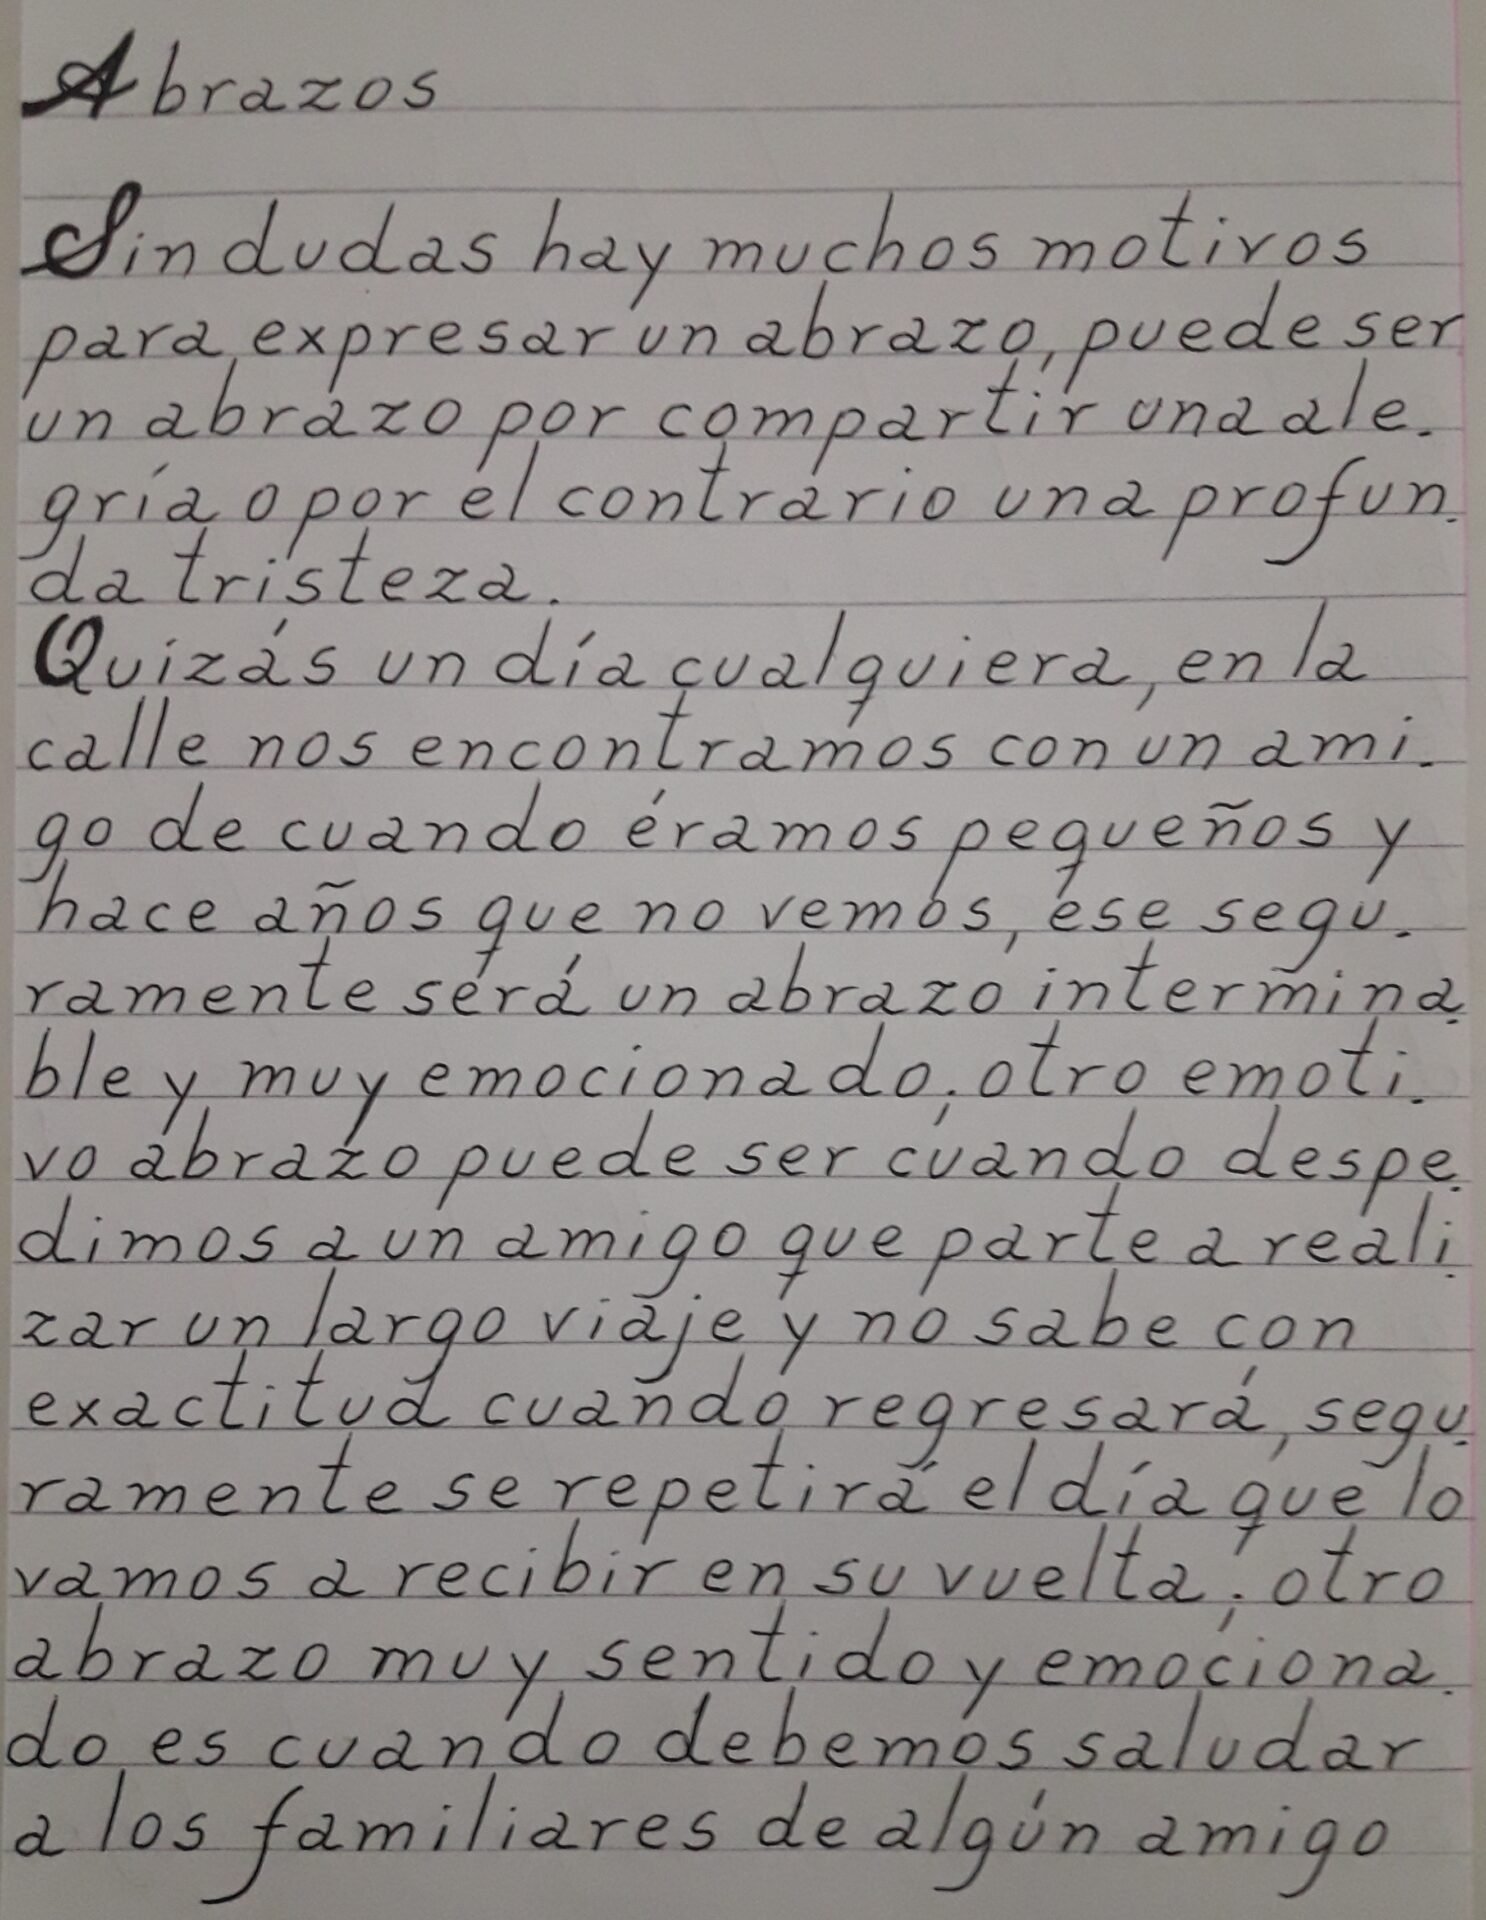 Abrazos
Sin dudas hay muchos motivos
para expresar un abrazo, puede ser
un abrazo por compartir una ale.
gría o por el contrario una profun.
da tristeza.
Quizás un día cualquiera, en la
calle nos encontramos con un ami.
go de cuando éramos pequeños y
hace años que no vemos, ese segu.
ramente será un abrazo intermina.
ble y muy emocionado; otro emoti.
vo abrazo puede ser cuando despe.
dimos a un amigo que parte a reali.
zar un largo viaje y no sabe con
exactitud cuando regresará, segu.
ramente se repetirá el día que lo
vamos a recibir en su vuelta; otro
abrazo muy sentido y emociona.
do es cuando debemos saludar
a los familiares de algún amigo